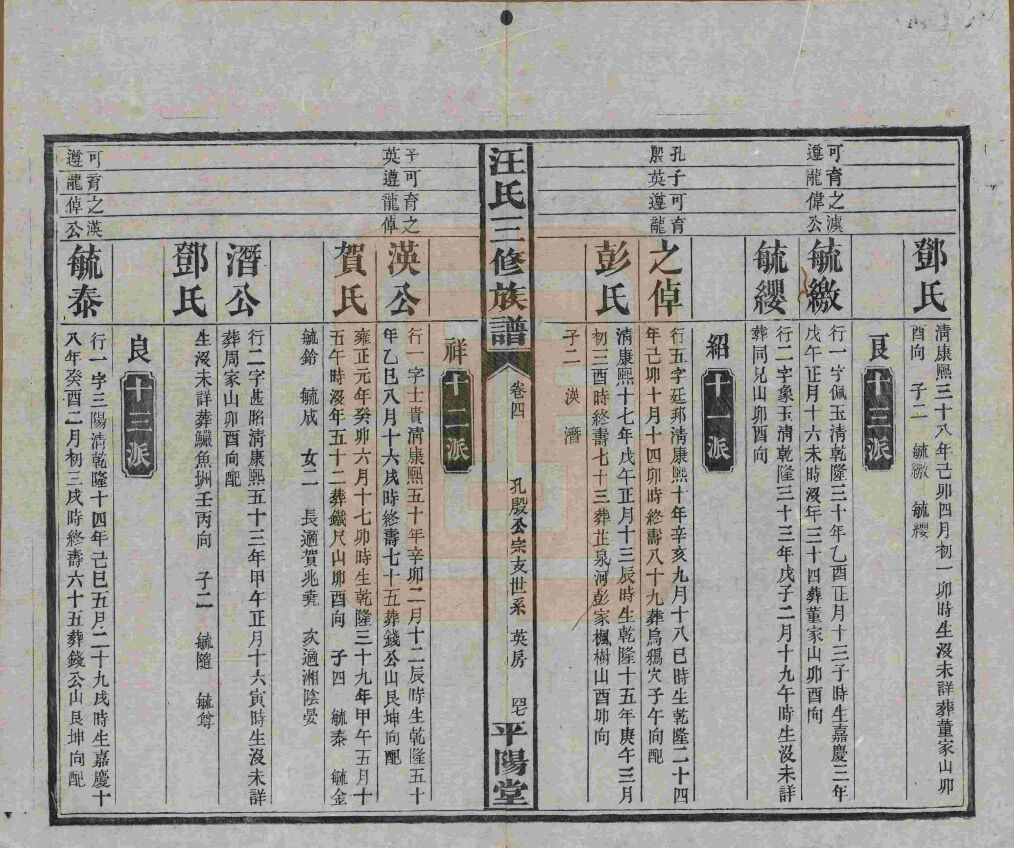 鄧氏
清康熙三十八年己卯四月初一卯時生沒未詳葬董家山卯
酉向 子二 毓繳 毓纓
良 十三派
可育之淢
遵龍偉公
毓繳
行一字佩玉清乾隆三十年乙酉正月十三子時生嘉慶三年
戊午正月十六未時沒年三十四葬董家山卯酉向
毓纓
行二字象玉清乾隆三十三年戊子二月十九午時生沒未詳
葬同兄山卯酉向
紹 十一派
孔子可育
殷英遵龍
之倬
行五字廷邦清康熙十年辛亥九月十八巳時生乾隆二十四
年己卯十月十四卯時終壽八十九葬烏鴉穴子午向配
彭氏
清康熙十七年戊午正月十三辰時生乾隆十五年庚午三月
初三酉時終壽七十三葬芷泉河彭家楓樹山酉卯向
子二 渶 潛
汪氏三修族譜
卷四 孔殷公宗支世系 英房
平陽堂
祥 十二派
子可育之
英遵龍倬
渶公
行一字士貴清康熙五十年辛卯二月十二辰時生乾隆五十
年乙巳八月十六戌時終壽七十五葬錢公山艮坤向配
賀氏
雍正元年癸卯六月十七卯時生乾隆三十九年甲午五月十
五午時沒年五十二葬鐵尺山卯酉向 子四 毓泰 毓金
毓鈴 毓成 女二 長適賀兆堯 次適湘陰晏
潛公
行二字甚貽清康熙五十三年甲午正月十六寅時生沒未詳
葬周家山卯酉向配
鄧氏
生沒未詳葬鱺魚坤壬丙向 子二 毓隨 毓尊
良 十三派
可育之渶
遵龍倬公
毓泰
行一字三陽清乾隆十四年己巳五月二十九戌時生嘉慶十
八年癸酉二月初三戌時終壽六十五葬錢公山艮坤向配